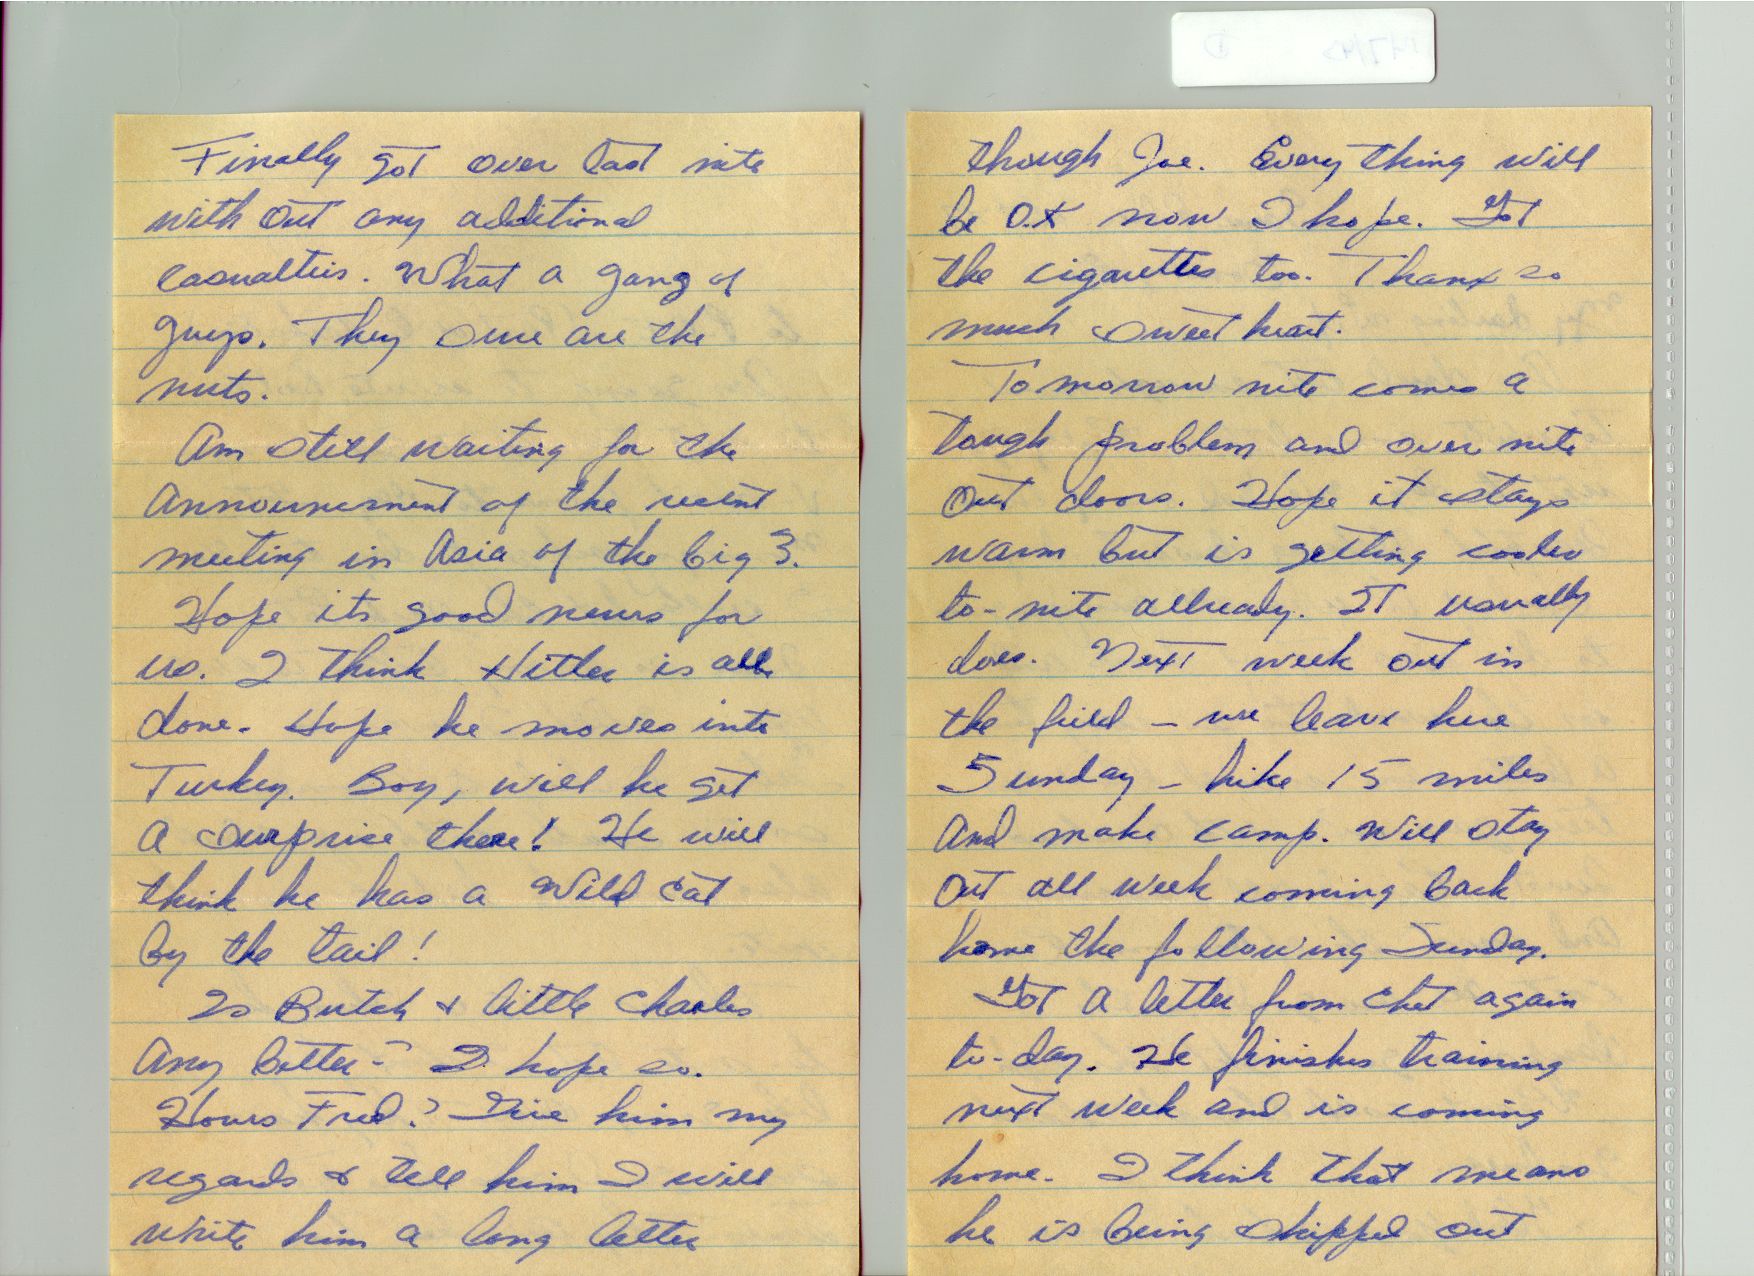 Finally got over last nite
with out any additional
casualties. What a gang of
guys. They sure are the
nuts.
Am still waiting for the
announcement of the recent
meeting in Asia of the big 3.
Hope its good news for
us. I think Hitler is all
done. Hope he moves into
Turkey. Boy, will he get
a surprise there! He will
think he has a Wild cat
by the tail!
Is Butch & little Charles
any better? I hope so.
Hows Fred? Give him my
regards & tell him I will
write him a long letter
though Joe. Every thing will
be O.K now I hope. Got
the cigarettes too. Thanx so
much sweet heart.
Tomorrow nite comes a
tough problem and over nite
out doors. Hope it stays
warm but is getting cooler
to-nite allready. It usually
does. Next week out in
the field - we leave here
Sunday - hike 15 miles
and make camp. Will stay
out all week coming back
home the following Sunday.
Got a letter from Chet again
to-day. He finishes training
next week and is coming
home. I think that means
he is being shipped out